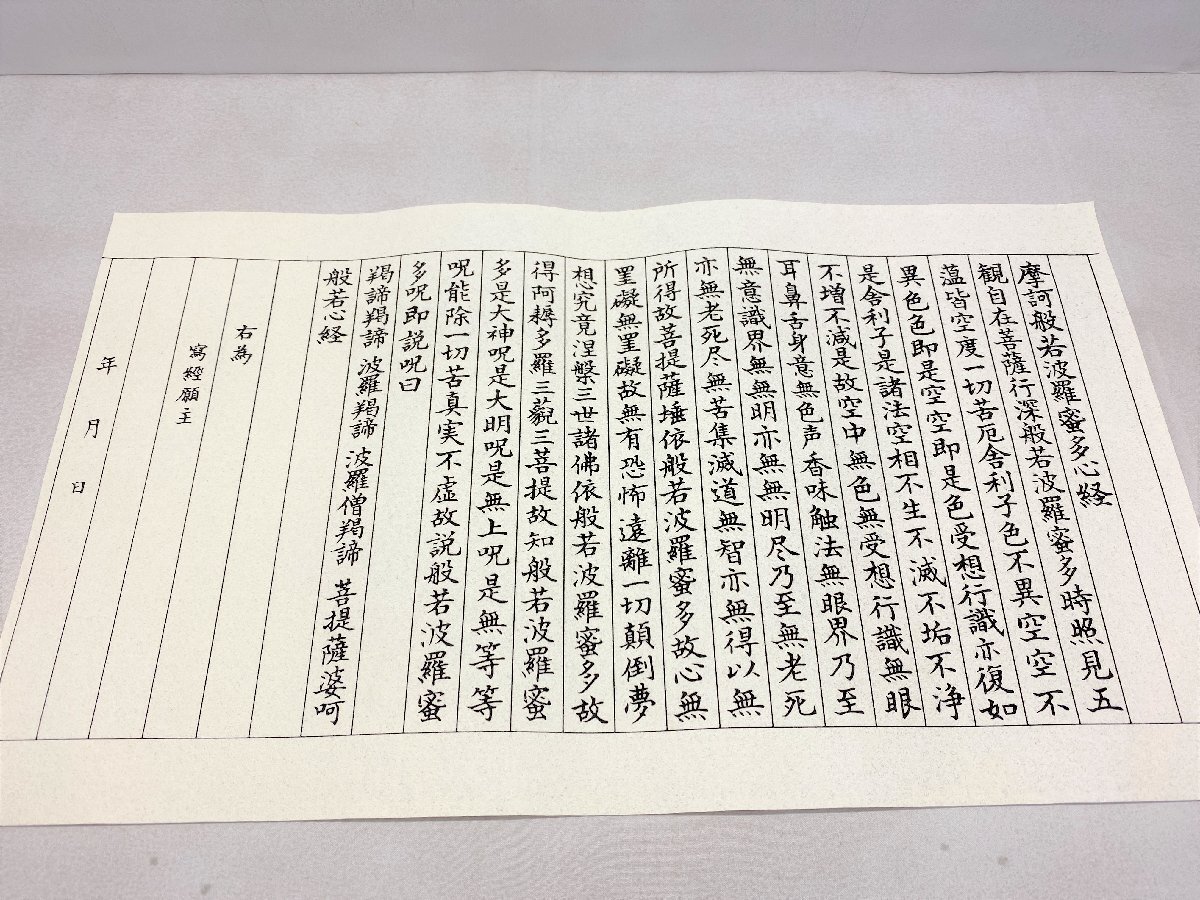 摩訶般若波羅蜜多心経
観自在菩薩行深般若波羅蜜多時照見五
蘊皆空度一切苦厄舎利子色不異空空不
異色色即是空空即是色受想行識亦復如
是舎利子是諸法空相不生不滅不垢不浄
不増不減是故空中無色無受想行識無眼
耳鼻舌身意無色声香味触法無眼界乃至
無意識界無無明亦無無明尽乃至無老死
亦無老死尽無苦集滅道無智亦無得以無
所得故菩提薩埵依般若波羅蜜多故心無
罣礙無罣礙故無有恐怖遠離一切顛倒夢
想究竟涅槃三世諸佛依般若波羅蜜多故
得阿耨多羅三藐三菩提故知般若波羅蜜
多是大神呪是大明呪是無上呪是無等等
呪能除一切苦真実不虚故説般若波羅蜜
多呪即説呪曰
羯諦羯諦 波羅羯諦 波羅僧羯諦 菩提薩婆呵
般若心経
右為
寫經願主
年 月 日